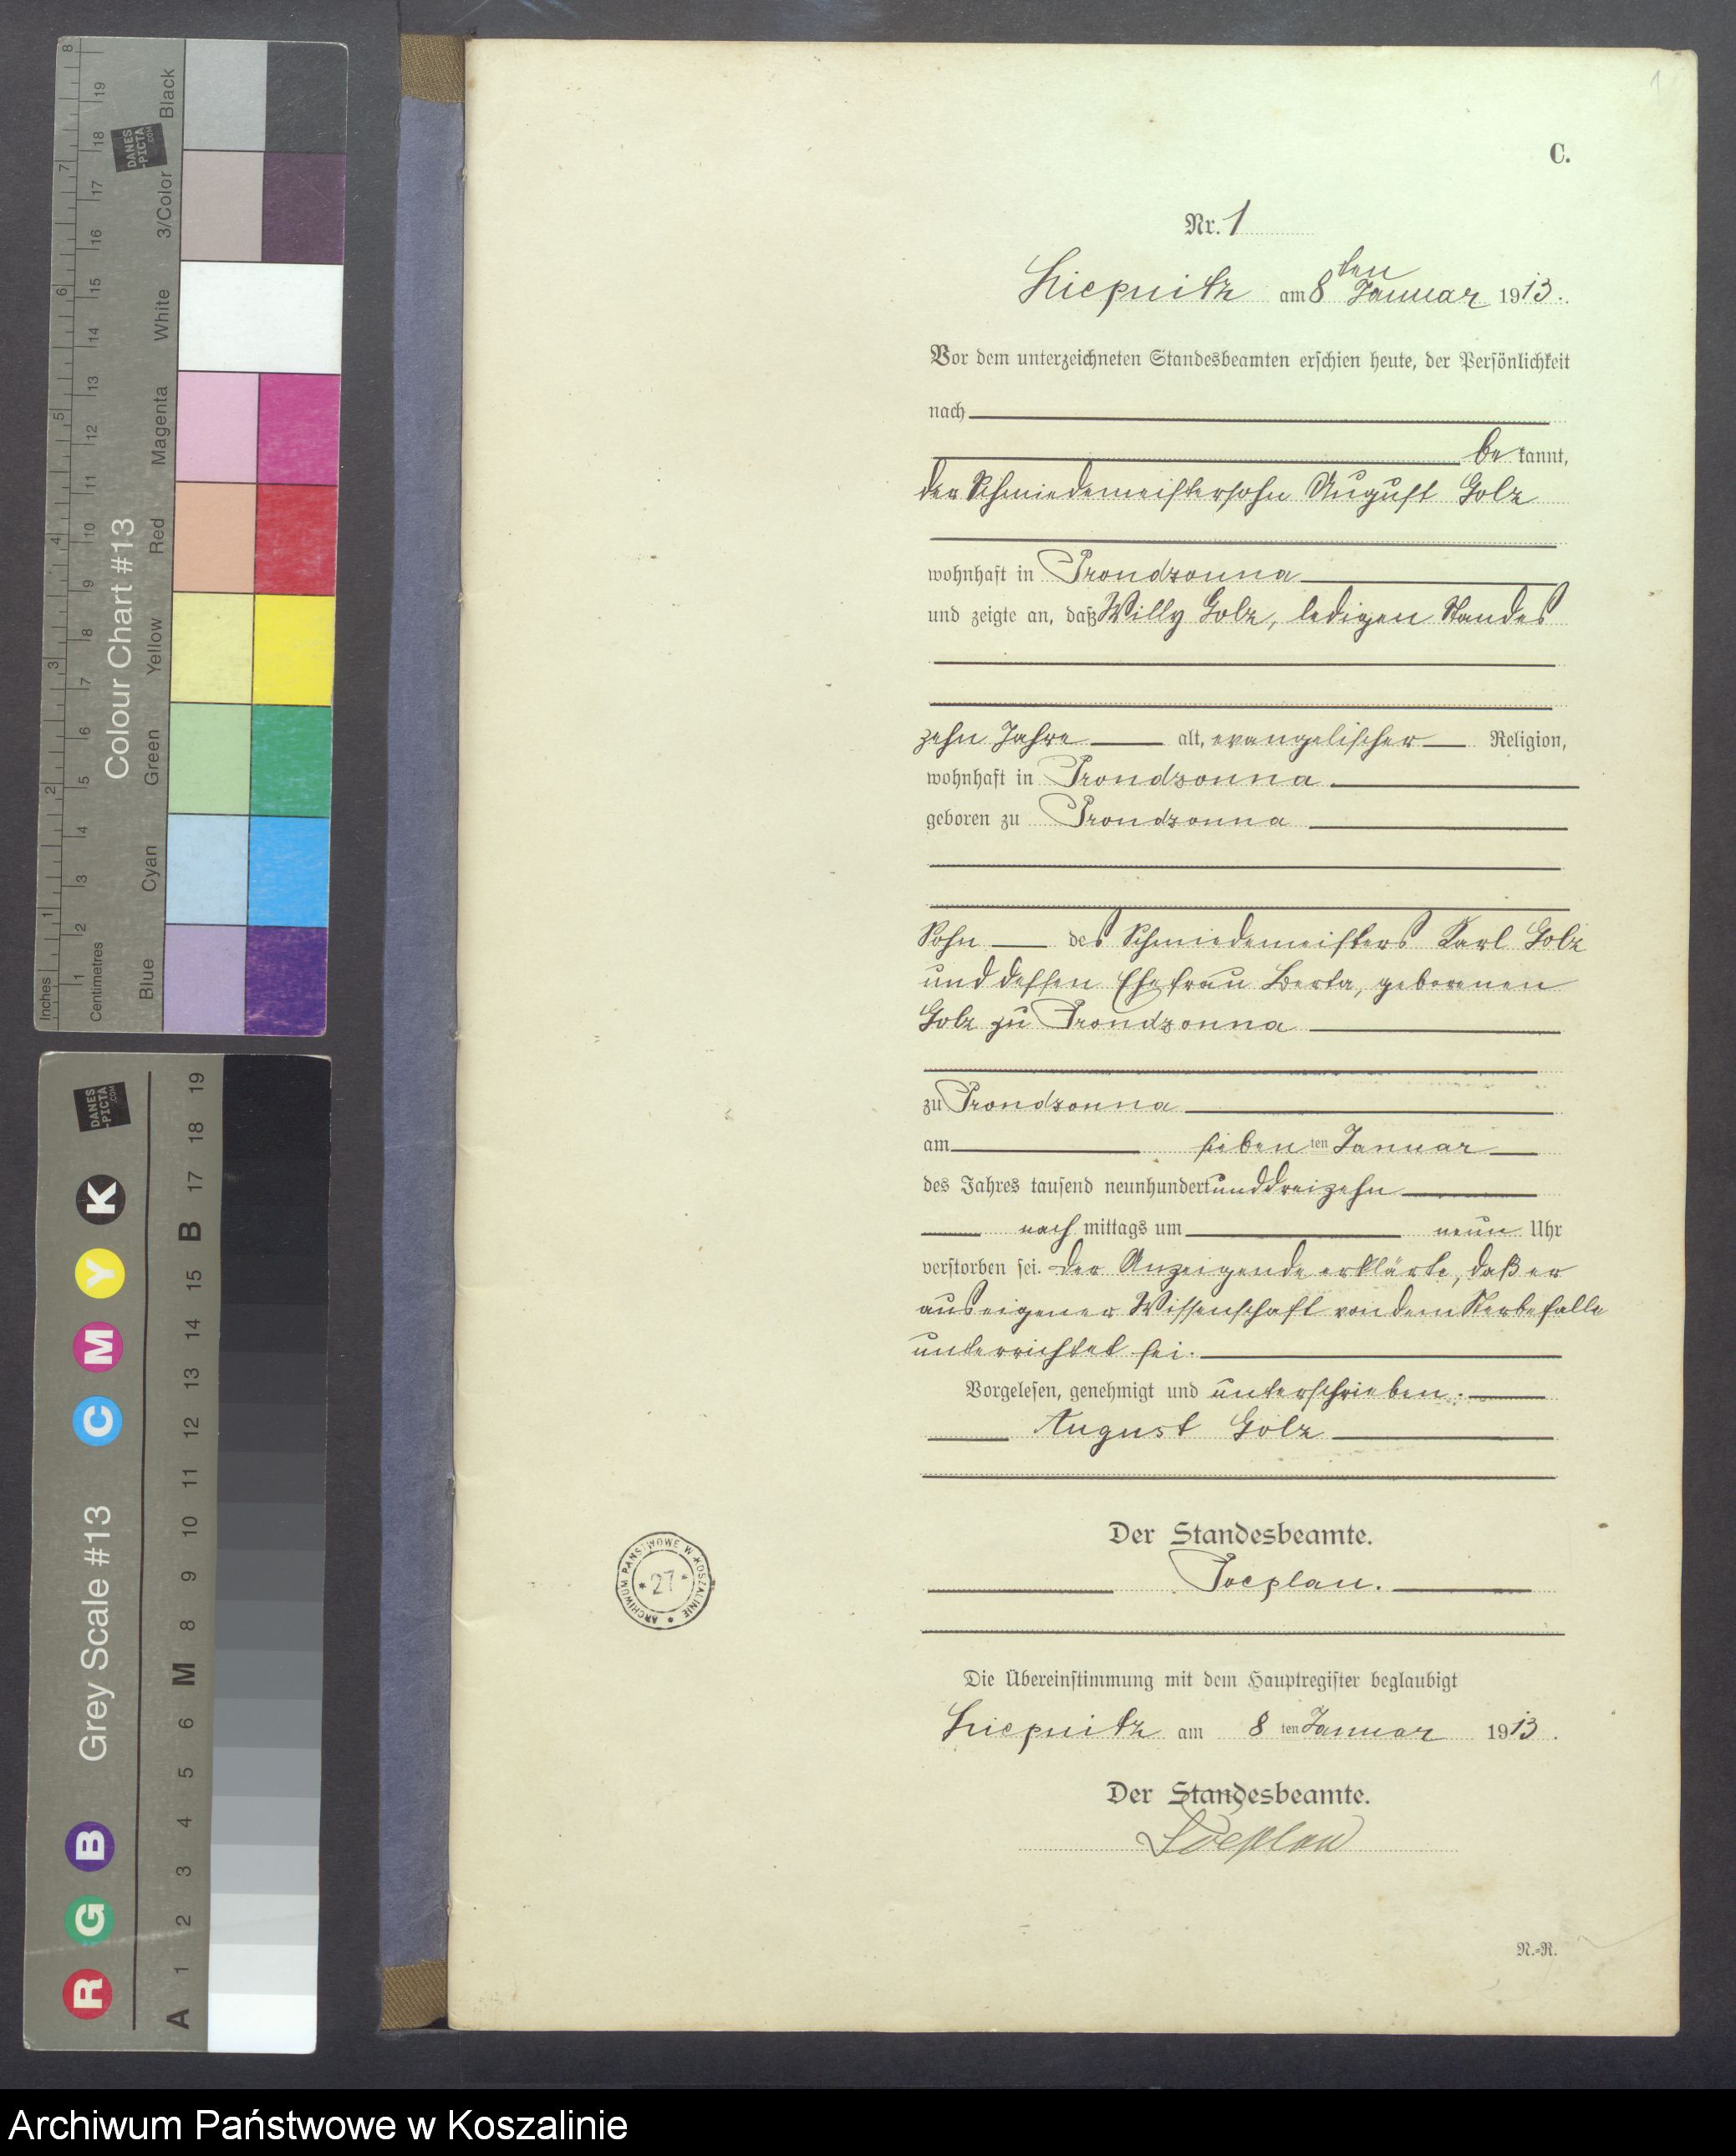 1
C.
Nr. 1
Liepnitz am 8ten Januar 1913.
Vor dem unterzeichneten Standesbeamten erschien heute, der Persönlichkeit
nach
be kannt,
der Schmiedemeistersohn August Golz
wohnhaft in Prondzonna
und zeigte an, daß Willy Golz, ledigen Standes
zehn Jahre alt, evangelischer Religion,
wohnhaft in Prondzonna
geboren zu Prondzonna
Sohn des Schmiedemeisters Karl Golz
und dessen Ehefrau Berta, geborenen
Golz zu Prondzonna
zu Prondzonna
am sieben ten Januar
des Jahres tausend neunhundert unddreizehn
nach mittags um neun Uhr
verstorben sei. Der Anzeigende erklärte, daß er
aus eigener Wissenschaft von dem Sterbefalle
unterrichtet sei.
Vorgelesen, genehmigt und unterschrieben.
August Golz
Der Standesbeamte.
ARCHIWUM PAŃSTWOWE W KOSZALINIE
* 27 *
Die Übereinstimmung mit dem Hauptregister beglaubigt
Liepnitz am 8 ten Januar 1913.
Der Standesbeamte.
N.-R.
Inches 1 2 3 4 5 6 7 8
Centimetres 1 2 3 4 5 6 7 8 9 10 11 12 13 14 15 16 17 18 19
Colour Chart #13
Blue Cyan Green Yellow Red Magenta White 3/Color Black
DANES
-PICTA
.COM
Grey Scale #13
R G B C M Y K
A 1 2 3 4 5 6 M 8 9 10 11 12 13 14 15 B 17 18 19
DANES
-PICTA
.COM
Archiwum Państwowe w Koszalinie